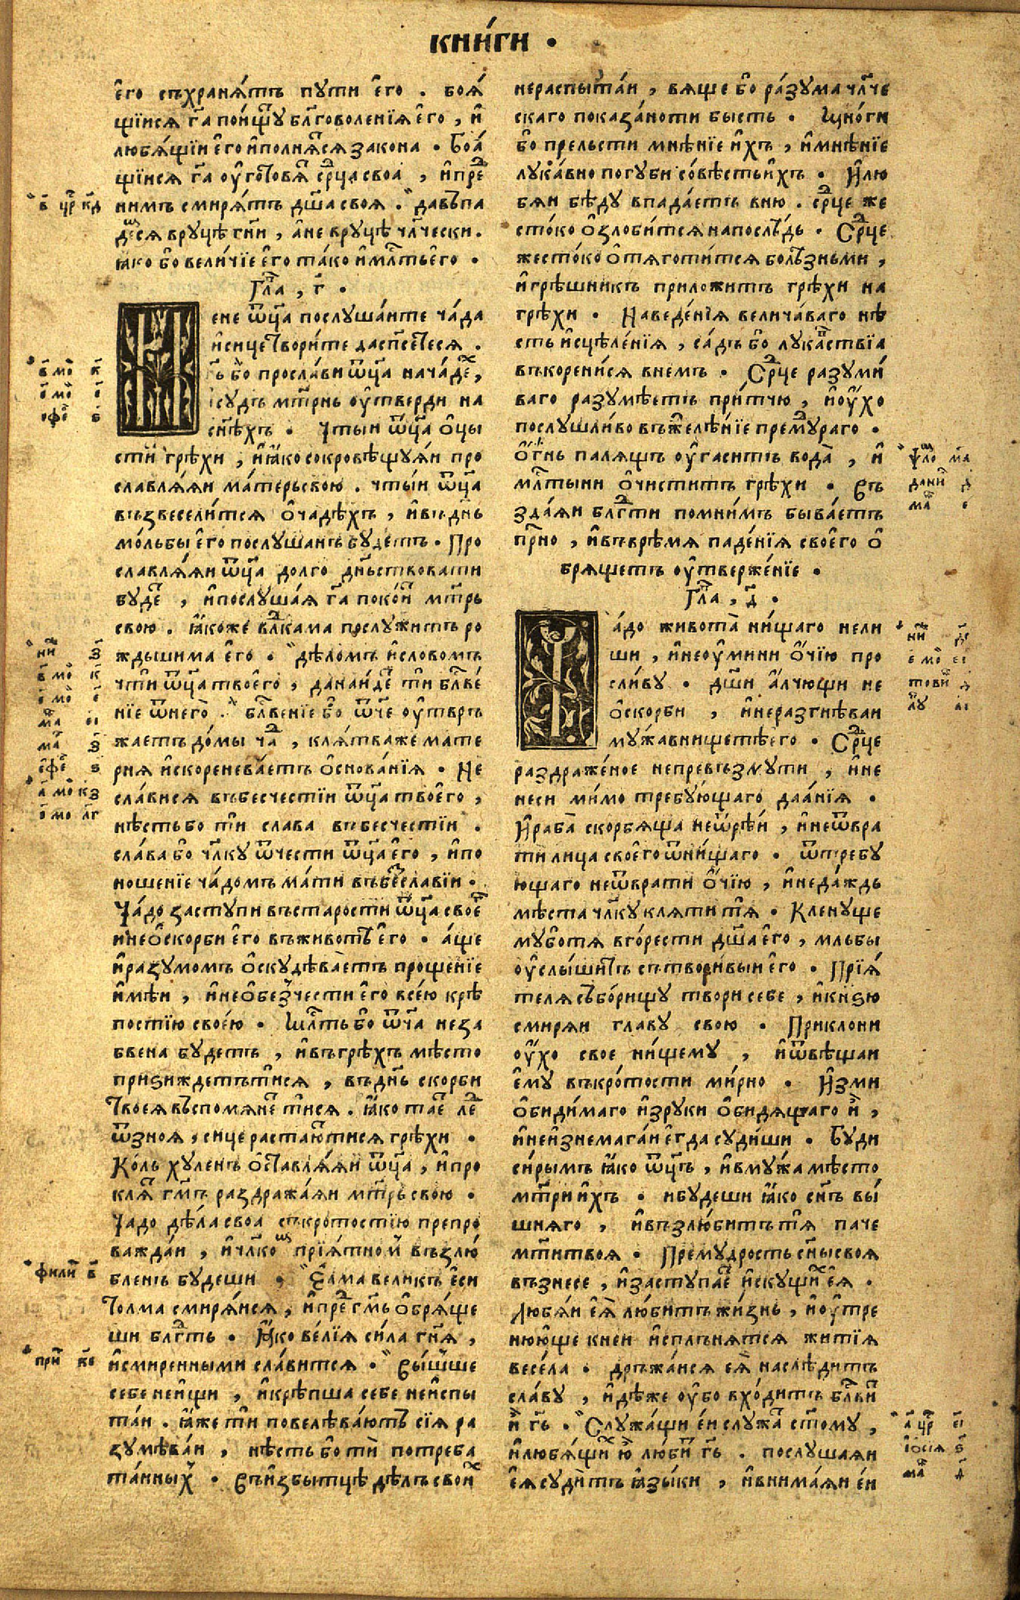 книги .
его съхранятъ пути его . боя
щиися г҃а поищꙋ бл҃говоленїя его , и
любящіи его исполнятся закона . Боя
щіися г҃а оуготовя ср҃ца своа , и пре
нимъ смирятъ дш҃а своя . давъпа
демся врꙋцѣ гн҃и , а не врꙋцѣ чл҃чески .
ꙗко бо величїе его тако и мл҃ть его .
Гла , г҃ .
ене ѿц҃а послꙋшаите чада
и сице творите да спсетеся .
гь бо прослави ѿц҃а на чаде ,
и сꙋдъ мт҃рнь оутверди на
сн҃ѣхъ . Чтыи ѿц҃а оцы
стй грѣхи , и ꙗко сокровѣщꙋяи про
славляяи матерь свою . чтыи ѿц҃а
възвеселится о чадѣхъ , и въ дн҃ь
мольбы его послꙋшанъ бꙋдетъ . Про
славляяи ѿц҃а долго дн҃ьствовати
бꙋде , и послꙋшая г҃а покои мт҃рь
свою . ꙗкоже вл҃кама послꙋжитъ ро
ждьшима его . дѣломъ и словомъ
чти ѿц҃а твоего , да наиде ти бл҃ве
нїе ѿ него . бл҃венїе бо ѿче оутвръ
жаетъ домы ча , клятва же мате
рня искореневаетъ основанїя . Не
славися въ бесчестіи ѿц҃а твоего ,
нѣсть бо ти слава въ бесчестіи .
слава бо чл҃кꙋ ѿ чести ѿц҃а его , и по
ношенїе чадомъ мати въ беславіи .
Чадо застꙋпи въ старости ѿц҃а свое
и не оскорби его въ животѣ его . аще
и разꙋмомъ оскꙋдѣваетъ прощенїе
имѣи , и не обезчести его всею крѣ
постїю своею . Млⷭть бо ѿча неза
бвена бꙋдетъ , и въ грѣхъ мѣсто
приѕиждетътися , въ дн҃ь скорби
твоея въспомянетися . ꙗко та ле
ѿ зноя , сице растаютися грѣхи .
Коль хꙋленъ оставляяи ѿц҃а , и про
кля гм҃ъ раздражаяи мт҃рь свою .
Чадо дѣла своа съ кротостїю препро
важдаи , и чл҃ком прїятном възлю
бленъ бꙋдеши . Елма великъ еси
толма смиряися , и пре гм҃ь обряще
ши бл҃гть . ꙗко велїя сила гн҃я ,
и смиренными славится . Вышше
себе не ищи , и крѣпша себе не испы
таи . ꙗже ти повелѣваютъ сїя ра
зꙋмѣваи , нѣсть бо ти потреба
таинных . Въ избытцѣ дѣлъ свои
не распытаи , вяще бо разꙋма чл҃че
скаго показаноти бысть . Многи
бо прельсти мнѣнїе ихъ , и мнѣнїе
лꙋкавно погꙋби совѣсть ихъ . И лю
бяи бѣдꙋ впадаетъ в ню . ср҃це же
стоко озлобится на послѣдь . Ср҃це
жестоко отяготится болѣзньми ,
и грѣшникъ приложитъ грѣхи на
грѣхи . Наведенїя величаваго нѣ
сть исцѣленїя , садъ бо лꙋкаствїа
въкоренися в немъ . Ср҃це разꙋми
ваго разꙋмѣетъ притчю , и оухо
послꙋшливо въжелѣнїе премꙋраго .
Огнь палящъ оугаситъ вода , и
мл҃тыни очиститъ грѣхи . Въ
здаяи бл҃гти помнимъ бываетъ
прⷭно , и въ врѣмя паденїя своего о
брящетъ оутверженїе .
Гла , д҃ .
адо живота нищаго не ли
ши , и не оумини очїю про
сливꙋ . дш҃и алчющи не
оскорби , и не разгнѣваи
мꙋжа в нищетѣ его . Ср҃це
раздраженое не превъзмꙋти , и не
неси мимо требꙋющаго даанїя .
И раба скорбяща не ѿрѣи , и не ѿвра
ти лица своего ѿ нищаго . ѿ требꙋ
ющаго не ѿврати очїю , и не даждь
мѣста чл҃кꙋ кляти тя . Кленꙋще
мꙋ бо тя в горести дш҃а его , мл҃ьбы
оуслышитъ сътворивыи его . Прїя
теля съборищꙋ твори себе , и кн҃ѕю
смиряи главꙋ свою . Приклони
оухо свое нищемꙋ , и ѿвѣщаи
емꙋ въ кротости мирно . Изми
обидимаго из рꙋки обидящаго и ,
и не изнемагаи егда сꙋдиши . Бꙋди
сирымъ ꙗко ѿц҃ъ , и в мꙋжа мѣсто
мт҃ри ихъ . и бꙋдеши ꙗко сн҃ъ вы
шняго , и възлюбитъ тя паче
мт҃и твоя . Премꙋдрость сн҃ы своя
възнесе , и застꙋпае искꙋщи ея .
Любяи ея любитъ жизнь , и оутре
нююще к неи исплънятся житїя
весела . дръжаися ея наслѣдитъ
славꙋ , идѣже оубо входитъ бл҃ви
и гь . Слꙋжащи еи слꙋжа ст҃омꙋ ,
и любящи ю люби гь . послꙋшаяи
ея сꙋдитъ ꙗзыки , и внимаяи еи